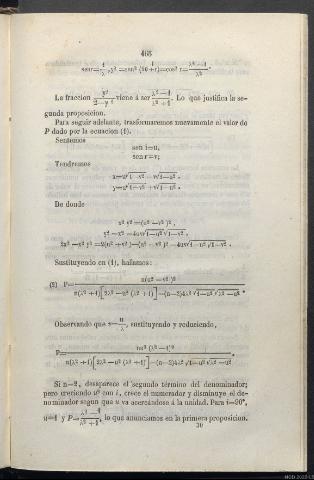 465
sen r = 1/λ, y² = sen² (90 + r) = cos² r = λ² − 1 / λ² .
La fraccion y² / 2 − y² viene á ser λ² − 1 / λ² + 1 . Lo que justifica la se-
gunda proposicion.
Para seguir adelante, trasformaremos nuevamente el valor de
P dado por la ecuacion (1).
Sentemos
sen i = u,
sen r = v;
Tendremos
x = u √1 − v² − v √1 − u² ,
y = u √1 − v² + v √1 − u² .
De donde
x² y² = (u² − v²)² ,
y² − x² = 4uv √1 − u² √1 − v² ,
Sustituyendo en (1), hallamos:
(2) P =
Observando que v = u / λ , sustituyendo y reduciendo,
P =
Si n = 2, desaparece el segundo término del denominador;
pero creciendo u² con i, crece el numerador y disminuye el de-
nominador segun que u va acercándose á la unidad. Para i = 90°,
u = 1 y P = λ² − 1 / λ² + 1 , lo que anunciamos en la primera proposicion.
30